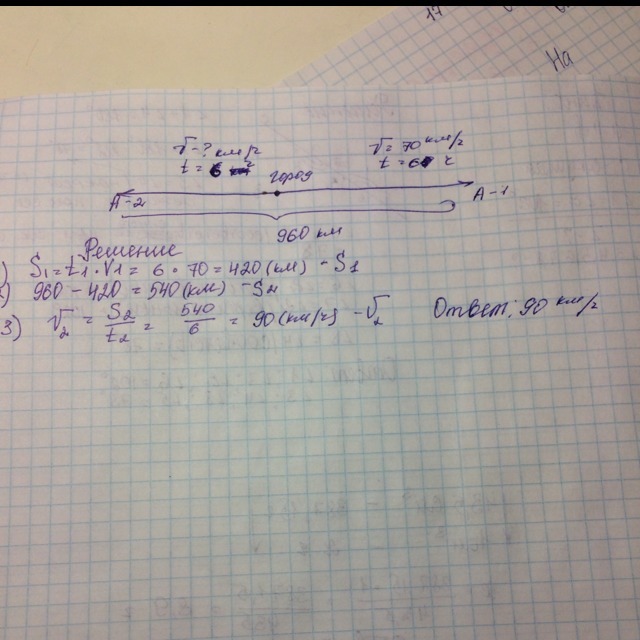 17
На
V - ? км/ч
t = 6 ч
город
V = 70 км/ч
t = 6 ч
А-2
А-1
960 км
Решение
) S1 = t1 · V1 = 6 · 70 = 420 (км) - S1
960 - 420 = 540 (км) - S2
3) V2 = S2/t2 = 540/6 = 90 (км/ч) - V2
Ответ: 90 км/ч